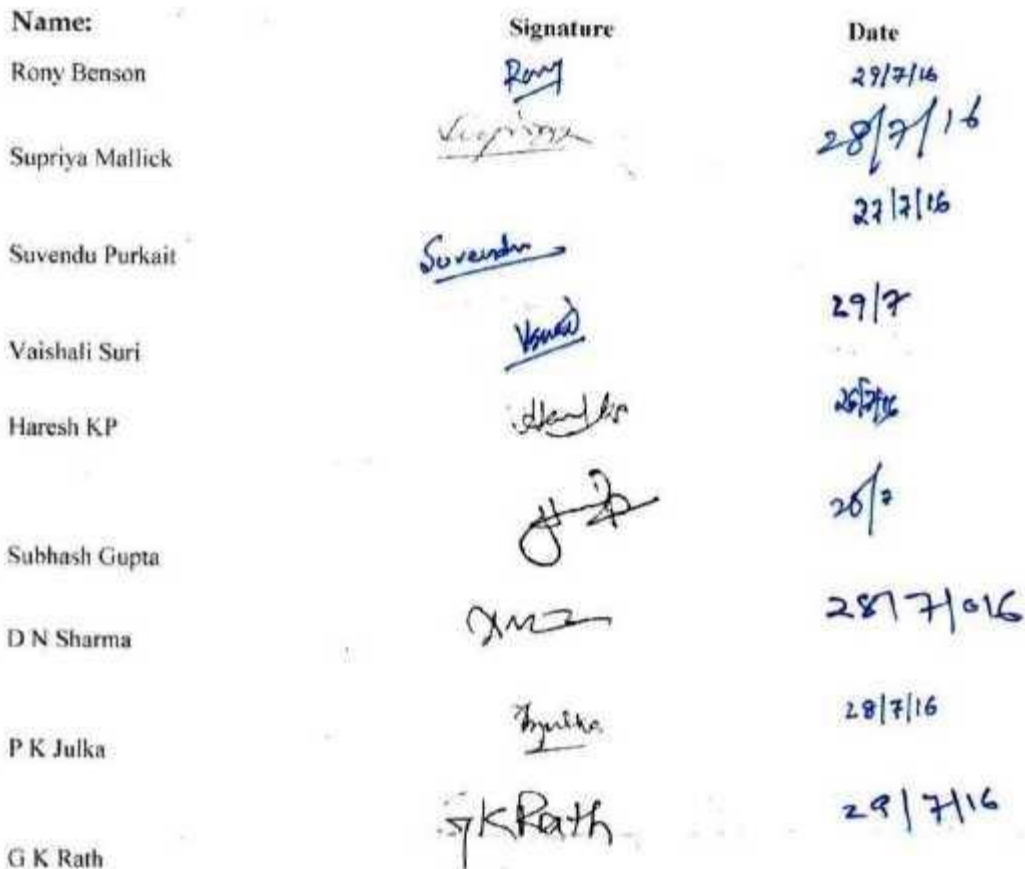 Name: Signature Date
Rony Benson Rony 29/7/16
Supriya Mallick Supriya 28/7/16
27/7/16
Suvendu Purkait Suvendu
29/7
Vaishali Suri
Haresh KP 26/7/16
Subhash Gupta 26/7
D N Sharma 28/7/016
P K Julka 28/7/16
G K Rath GKRath 29/7/16